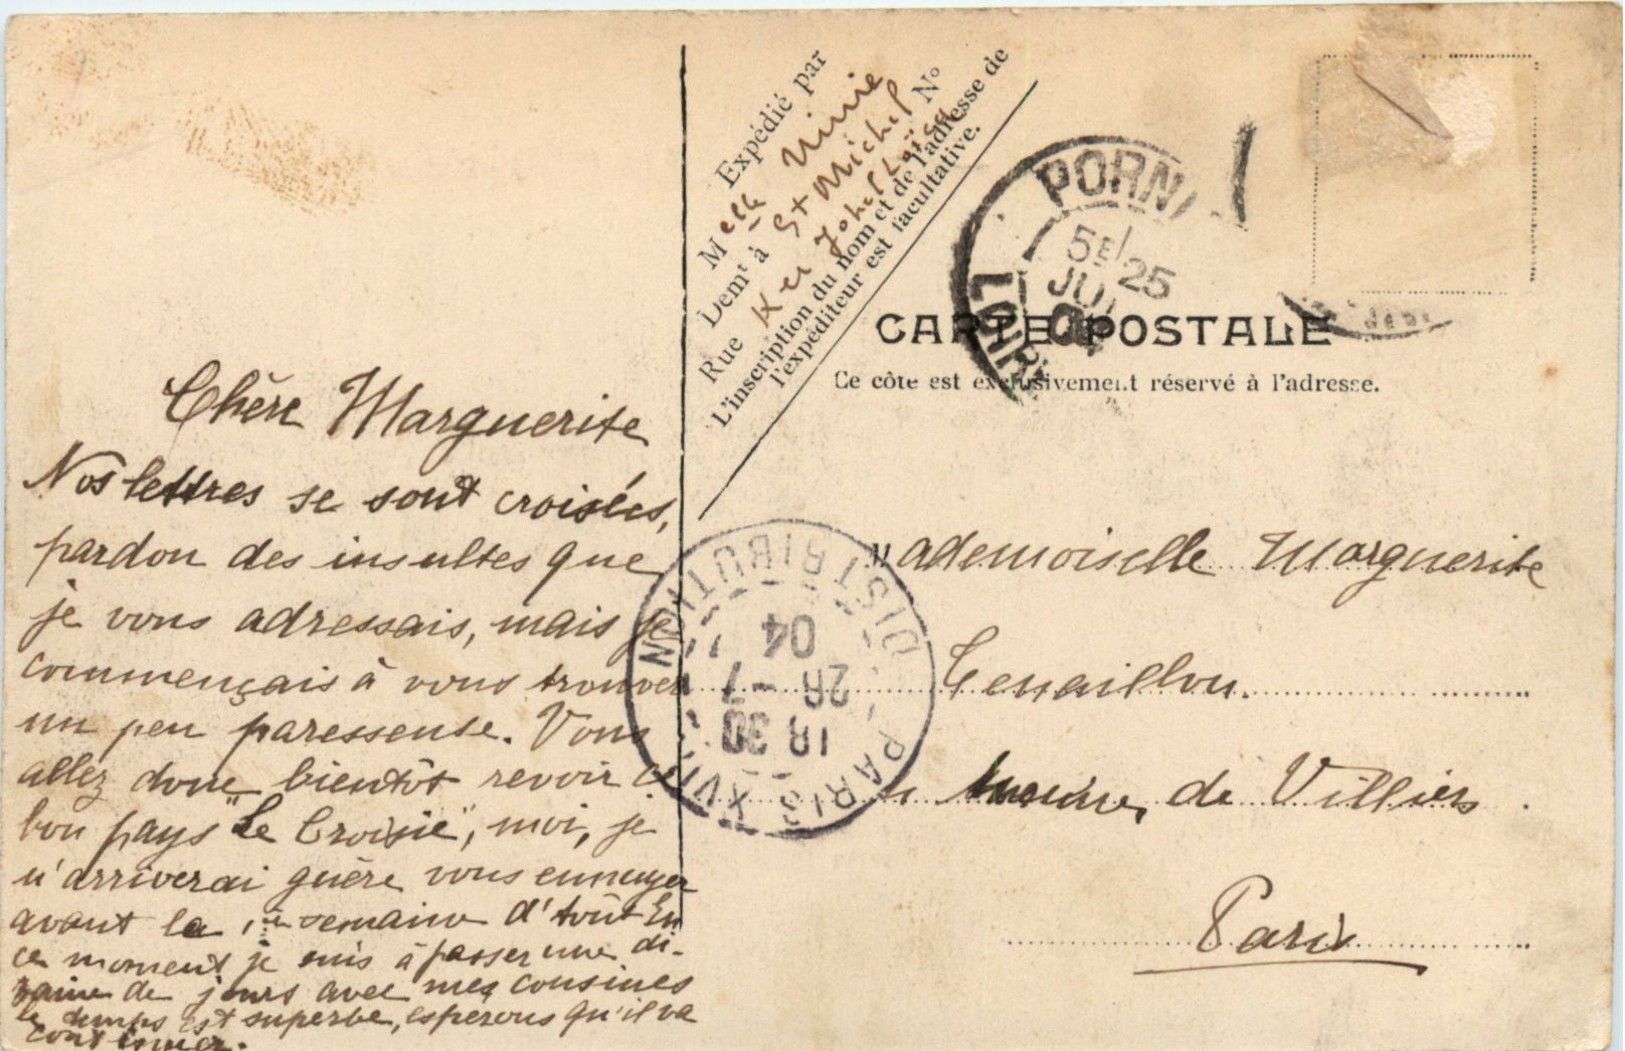 Chère Marguerite
Nos lettres se sont croisées,
pardon des insultes que
je vous adressais, mais je
commençais à vous trouver
un peu paresseuse. Vous
allez donc bientôt revoir ce
bon pays "Le Croisic", moi, je
n'arriverai guère vous ennuyer
avant la 1re semaine d'Août En
ce moment je suis à passer une di-
zaine de jours avec mes cousines
le temps est superbe, espérons qu'il va
continuer.
Expédié par
Melle Ninie
Demt à St Michel
Rue Ker N°
L'inscription du nom et de l'adresse de
l'expéditeur est facultative.
PORNI
5E/25
JUI
04
LOIR
CARTE POSTALE
Ce côté est exclusivement réservé à l'adresse.
Mademoiselle Marguerite
Tenaillon
de Villiers
Paris
PARIS XVII
18 30
28 -7
04
DISTRIBUTION